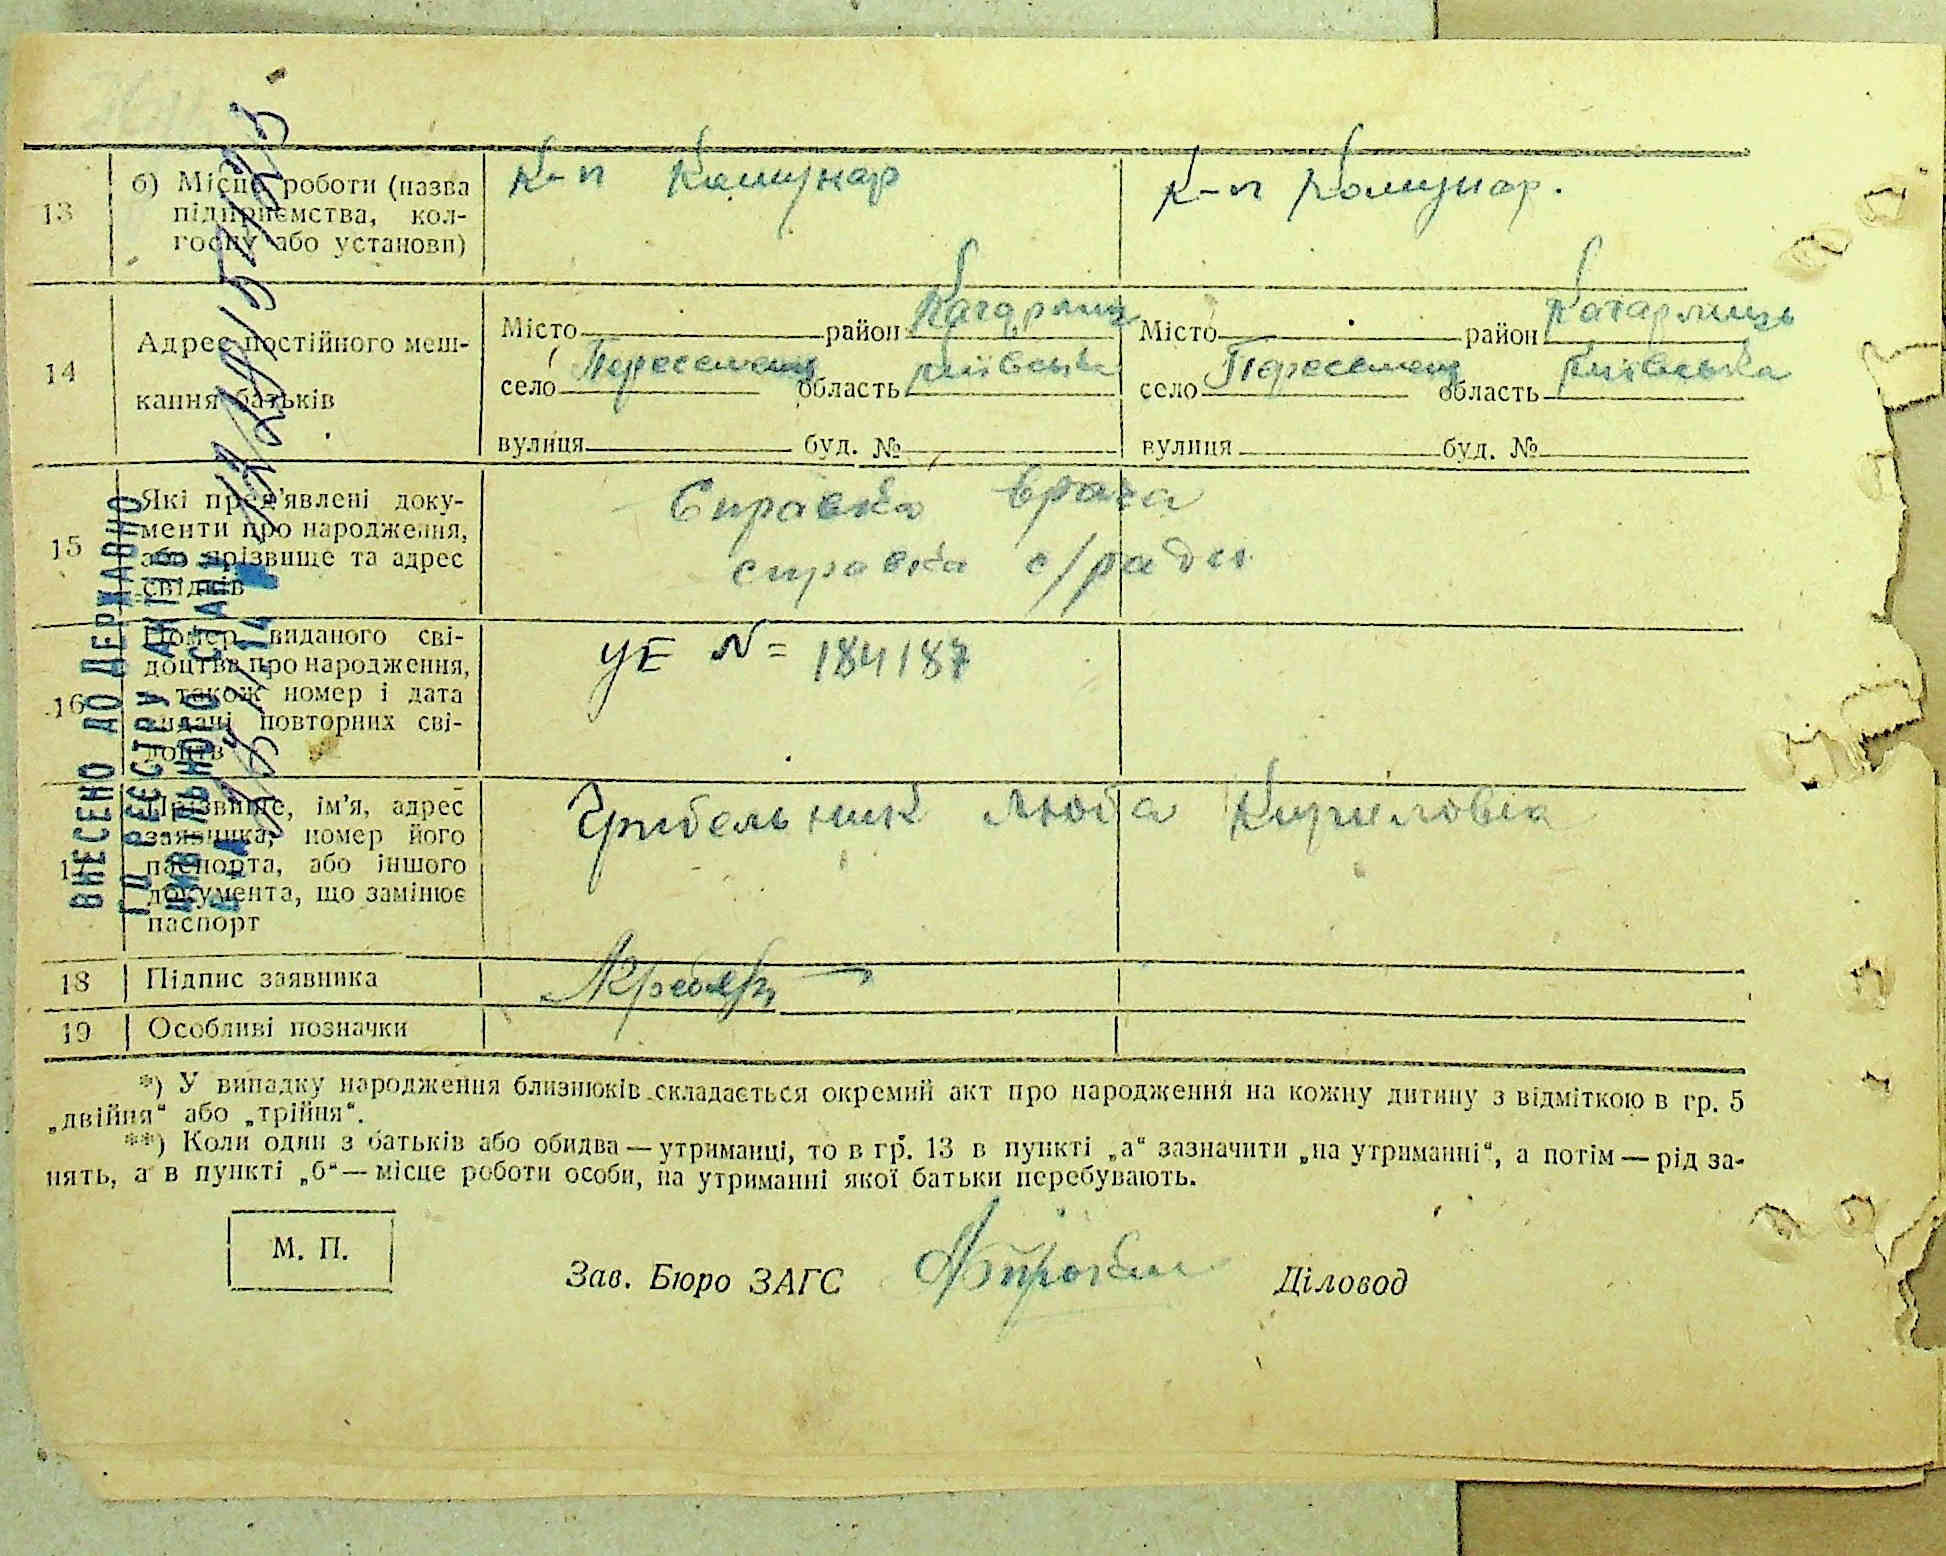 13
б) Місце роботи (назва
підприємства, кол-
госпу або установи)
к-п Комунар
к-п Комунар.
14
Адрес постійного меш-
кання батьків
Місто район Кагарлиц
село область київська
вулиця буд. №
Місто район Кагарлиць
село область київська
вулиця буд. №
15
Які пред'явлені доку-
менти про народження,
або прізвище та адрес
свідків
Справка врача
справка с/ради
16
Номер виданого сві-
доцтва про народження,
також номер і дата
видачі повторних сві-
доцтв
УЕ N= 184187
17
Прізвище, ім'я, адрес
заявника, номер його
паспорта, або іншого
документа, що замінює
паспорт
Люба Кириловна
18
Підпис заявника
19
Особливі позначки
*) У випадку народження близнюків складається окремий акт про народження на кожну дитину з відміткою в гр. 5
„двійня“ або „трійня“.
**) Коли один з батьків або обидва — утриманці, то в гр. 13 в пункті „а“ зазначити „на утриманні“, а потім — рід за-
нять, а в пункті „б“ — місце роботи особи, на утриманні якої батьки перебувають.
М. П.
Зав. Бюро ЗАГС
Діловод
ВНЕСЕНО ДО ДЕРЖАВНО
ГО РЕЄСТРУ АКТІВ
ЦИВІЛЬНОГО СТАНУ